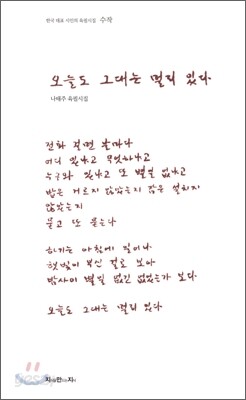 한국 대표 시인의 육필시집 수작
오늘도 그대는 멀리 있다
나태주 육필시집
전화 걸면 날마다
어디 있냐고 무엇하냐고
누구와 있냐고 또 별일 없냐고
밥은 거르지 않았는지 잠은 설치지
않았는지
묻고 또 묻는다
하기는 아침에 일어나
햇빛이 부신 걸로 보아
밤사이 별일 없긴 없었는가 보다.
오늘도 그대는 멀리 있다.
지식을만드는지식
yes24.com